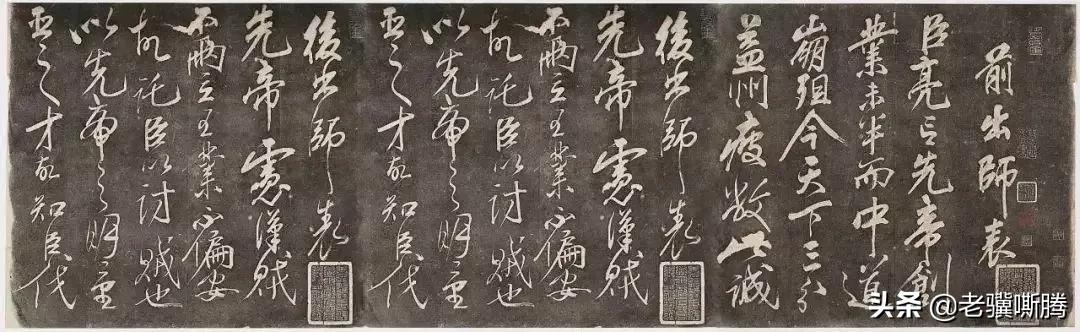 前出師表
臣亮言先帝創
業未半而中道
崩殂今天下三分
益州疲敝此誠
後出師表
先帝慮漢賊
不兩立王業不偏安
故託臣以討賊也
以先帝之明量
臣之才故知臣伐
後出師表
先帝慮漢賊
不兩立王業不偏安
故託臣以討賊也
以先帝之明量
臣之才故知臣伐
头条 @老骥嘶腾